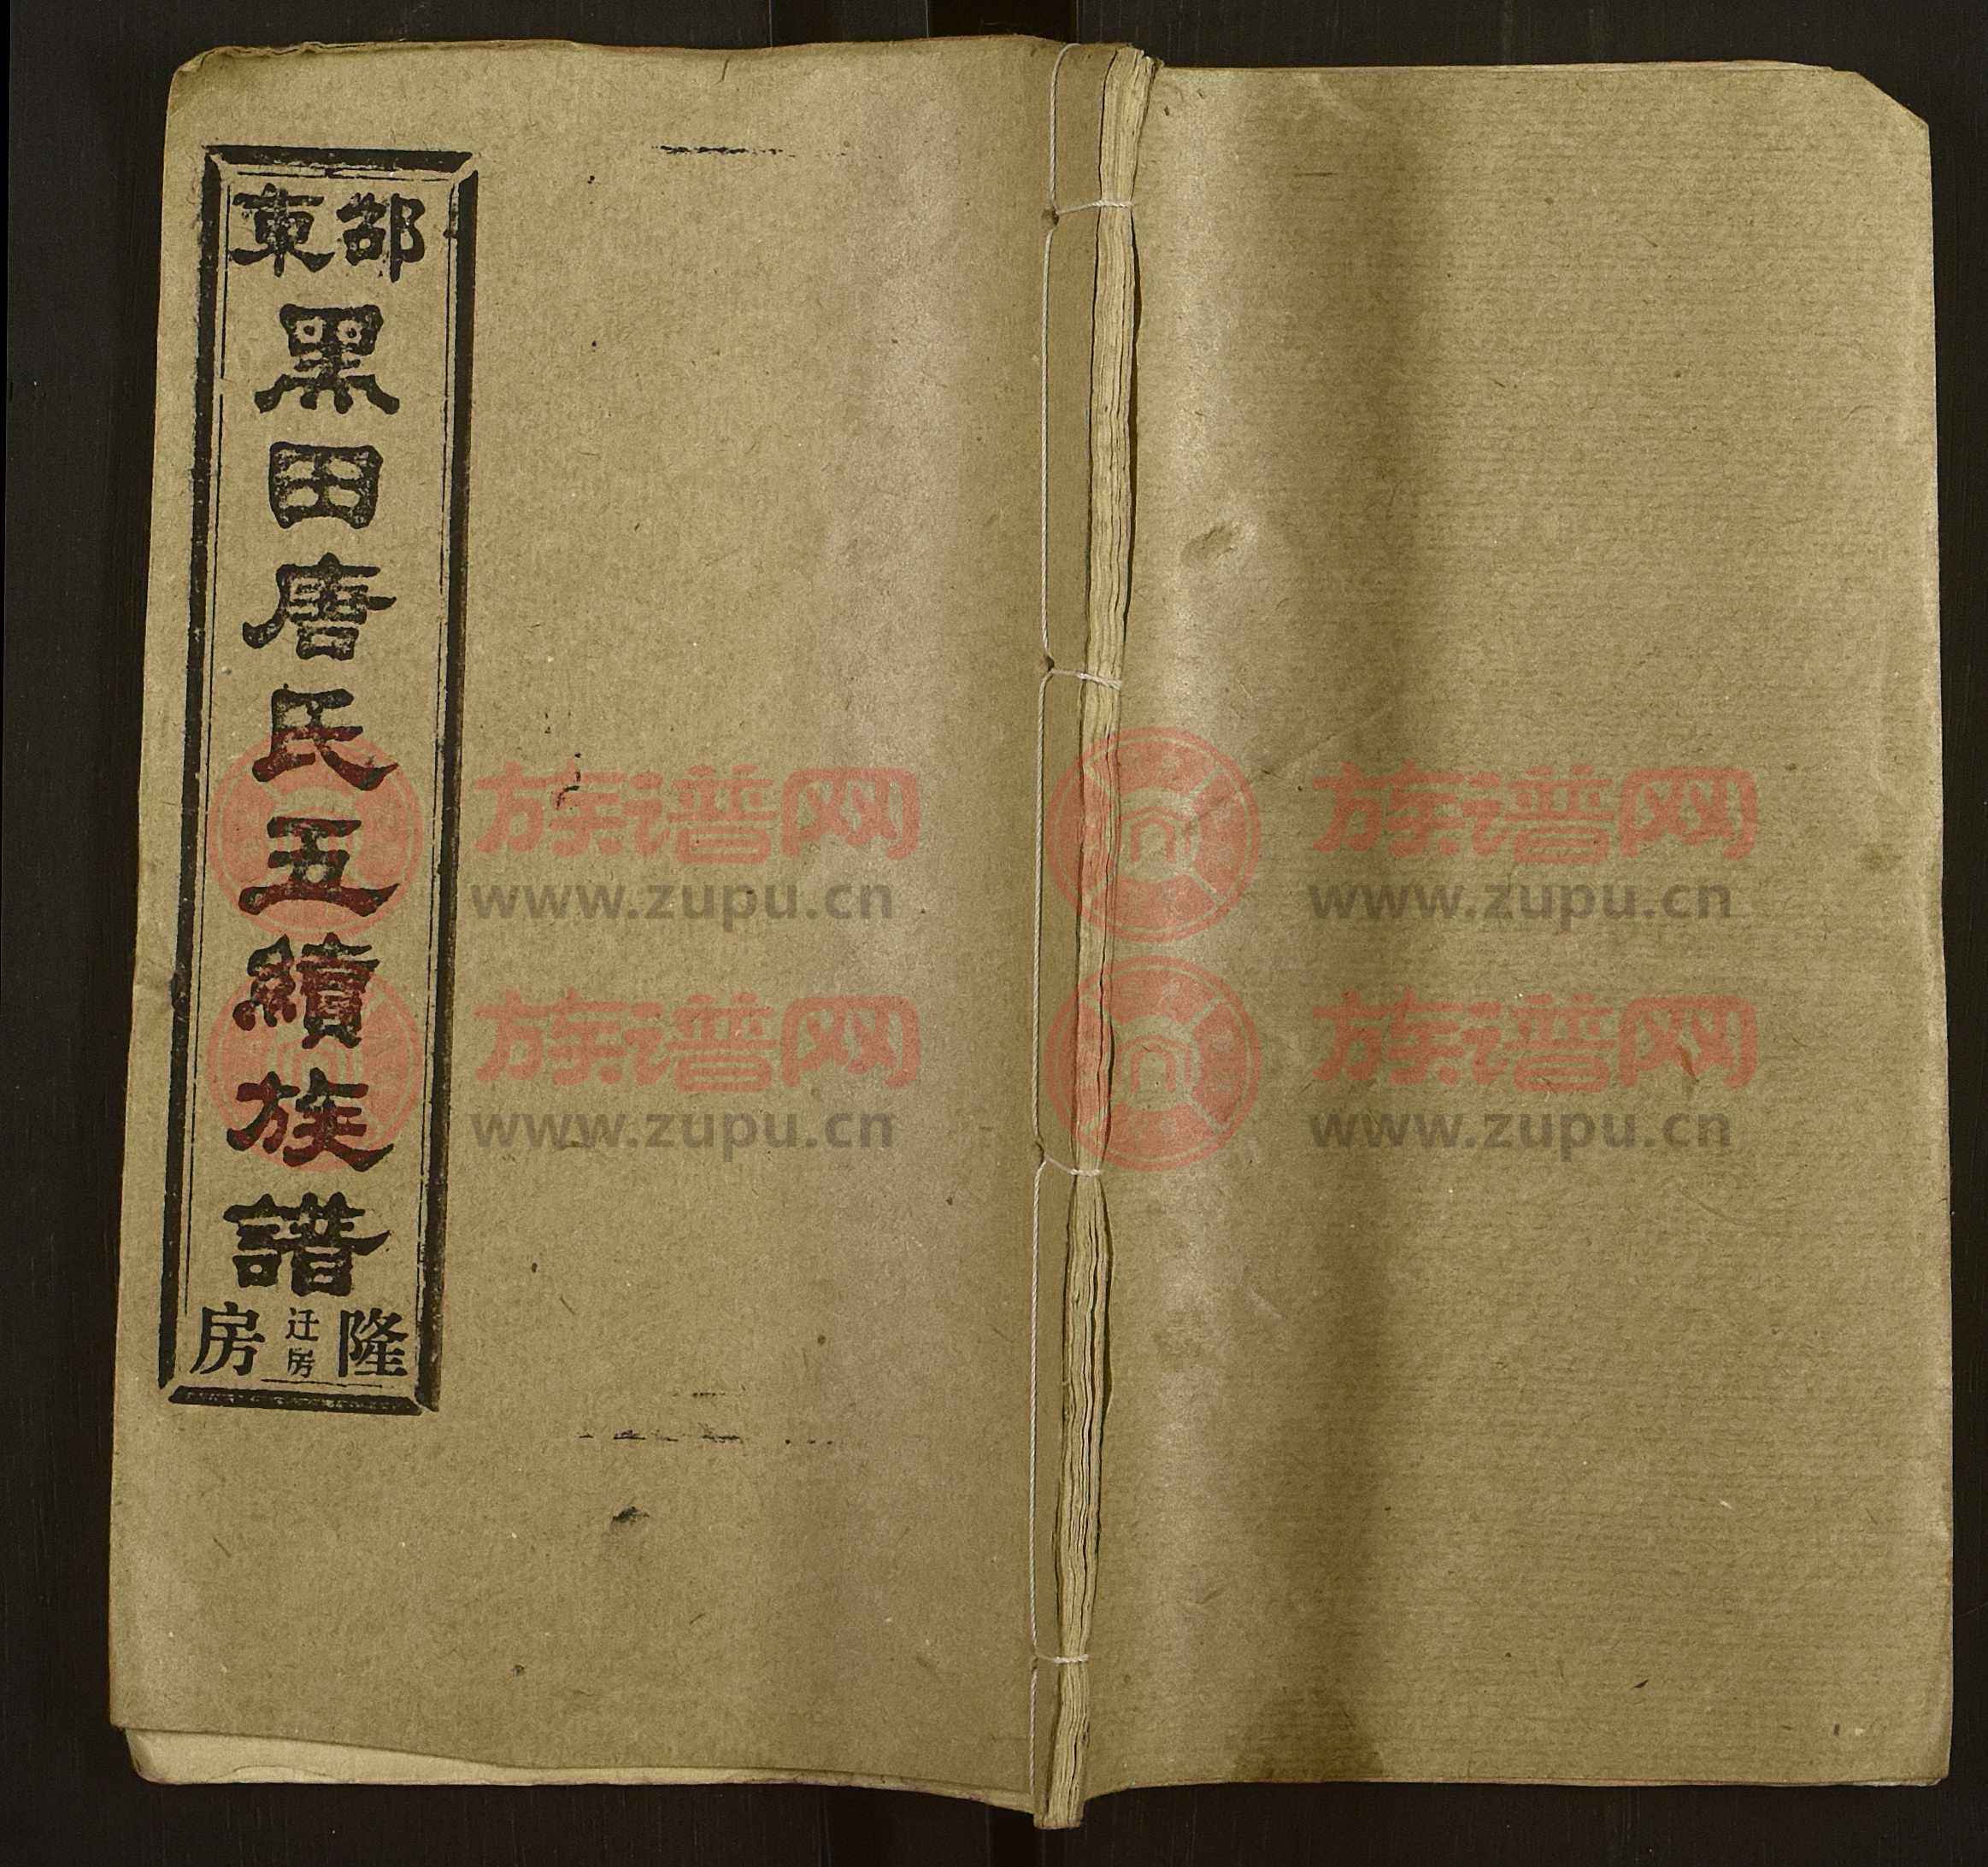 邵東
黑田唐氏五續族譜
隆迁房房
族谱网
www.zupu.cn
族谱网
www.zupu.cn
族谱网
www.zupu.cn
族谱网
www.zupu.cn